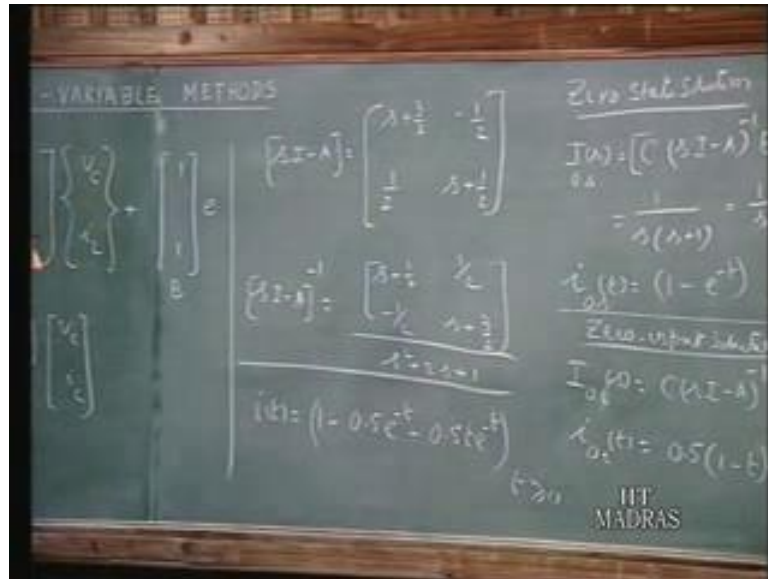 -VARIABLE METHODS
] { v_c i_L } + [ 1 1 ] e
B
[ v_c i_c ]
[sI-A] = [ s+3/2 -1/2
1/2 s+1/2 ]
[sI-A]^-1 = [ s+1/2 1/2
-1/2 s+3/2 ]
s²+2s+1
i(t) = (1 - 0.5e^-t - 0.5te^-t)
t ≥ 0
Zero State Solution
I_0s(s) = [C (sI-A)^-1
= 1/s(s+1) = 1/s
i_0s(t) = (1 - e^-t)
Zero-input Solution
I_0i(s) = C(sI-A)^-1
i_0i(t) = 0.5(1-t)
IIT
MADRAS